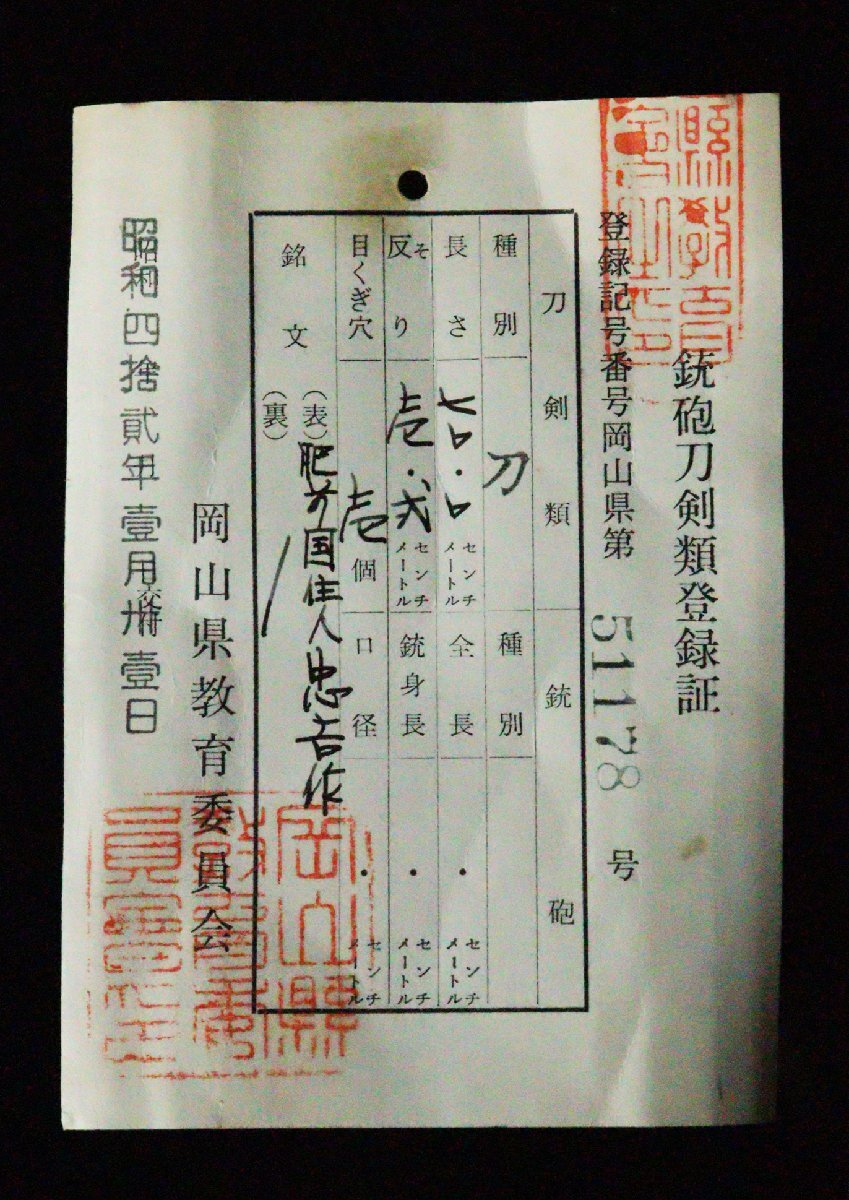 銃砲刀剣類登録証
登録記号番号岡山県第 51178 号
刀剣類 銃砲
種別 刀 種別
長さ 七〇・〇 センチメートル 全長 ・ センチメートル
反り そ 壱・弐 センチメートル 銃身長 ・ センチメートル
目くぎ穴 壱 個 口径 ・ センチメートル
銘文 (表) 肥前国住人忠吉作
(裏)
岡山県教育委員会
昭和四拾貳年壹月卅壹日
交付
岡山縣
教育委
員會之印